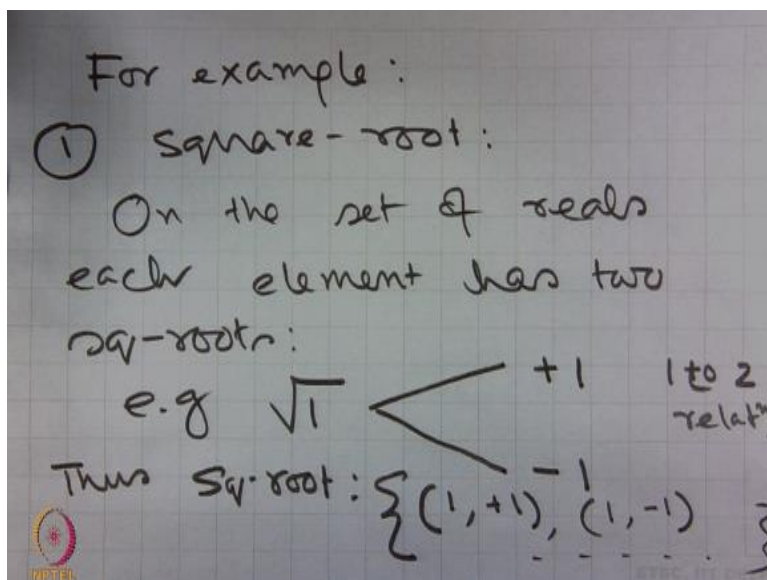 For example:
① square-root:
On the set of reals
each element has two
sq-roots:
e.g √1 +1 1 to 2
-1 relatⁿ
Thus sq.root: {(1,+1), (1,-1)
- - - - - }
NPTEL